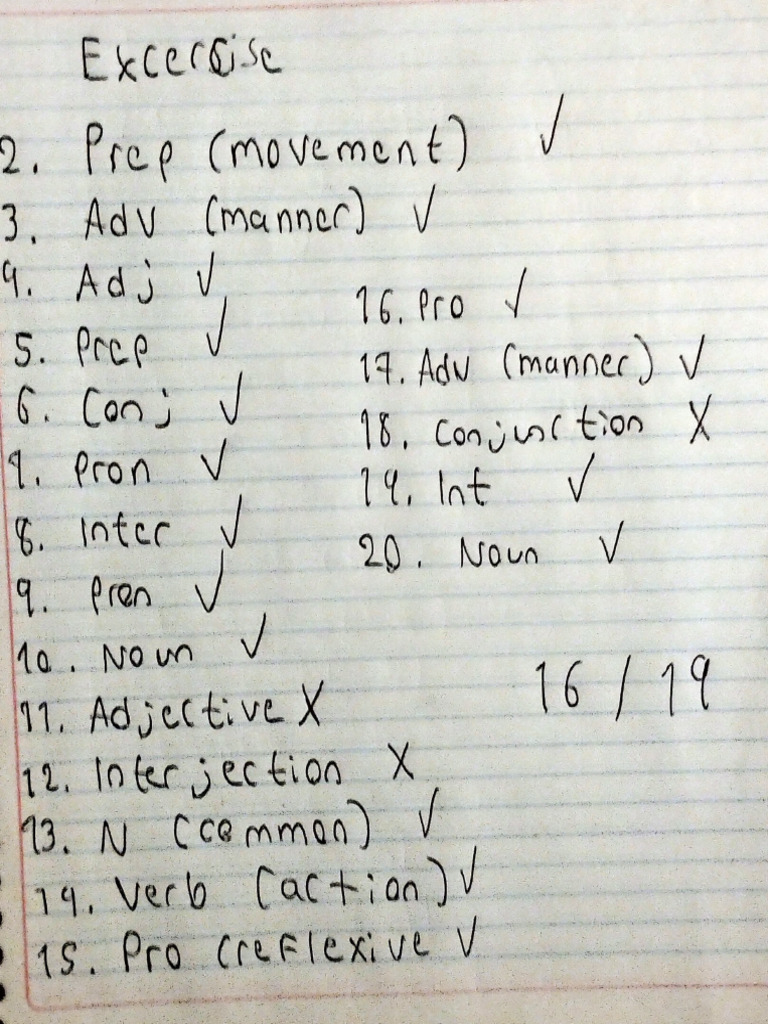 Excercise
2. Prep (movement) ✓
3. Adv (manner) ✓
4. Adj ✓
5. Prep ✓
6. Conj ✓
7. Pron ✓
8. Inter ✓
9. Pron ✓
10. Noun ✓
11. Adjective X
12. Interjection X
13. N (common) ✓
14. Verb (action) ✓
15. Pro (reflexive ✓
16. Pro ✓
17. Adv (manner) ✓
18. Conjunction X
19. Int ✓
20. Noun ✓
16 / 19